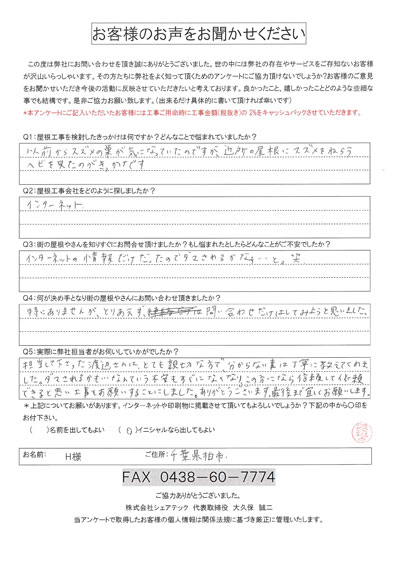 お客様のお声をお聞かせください
この度は弊社にお問い合わせを頂き誠にありがとうございました。世の中には弊社の存在やサービスをご存知ないお客様
が沢山いらっしゃいます。その方たちに弊社をよく知って頂くためのアンケートにご協力頂けないでしょうか?お客様のご意見
をお聞かせいただき今後の活動に反映させていただきたいと考えております。良かったこと、嬉しかったことどのような些細な
事でも結構です。是非ご協力お願い致します。(出来るだけ具体的に書いて頂ければ幸いです)
*本アンケートにご記入いただいたお客様には工事ご用命時に工事金額(税抜き)の2%をキャッシュバックさせていただきます。
Q1:屋根工事を検討したきっかけは何ですか?どんなことで悩まれていましたか?
以前からスズメの巣が気になっていたのですが、近所の屋根にスズメをねらう
ヘビを見たのがきっかけです
Q2:屋根工事会社をどのように探しましたか?
インターネット
Q3:街の屋根やさんを知りすぐにお問合せ頂けましたか?もし悩まれたとしたらどんなことがご不安でしたか?
インターネットの情報だけだったのでダマされるかな…と。笑
Q4:何が決め手となり街の屋根やさんにお問い合わせ頂きましたか?
特にありませんが、とりあえず、問い合わせだけはしてみようと思いました。
Q5:実際に弊社担当者がお伺いしていかがでしたか?
担当して下さった渡辺さんに、とても親切な方で分からない事は丁寧に教えてくれま
した。ダマされるかもいなんていう不安もすぐになくなり、この方になら信頼して依頼
できると思い工事をお願いすることにしました。ありがとうございます。最後まで宜しくお願いします。
*上記についてお願いがあります。インターネットや印刷物に掲載させて頂いてもよろしいでしょうか?下記の中から〇印を
お付け下さい。
( )名前を出してもよい (〇)イニシャルなら出してもよい
お名前: H様 ご住所: 千葉県柏市
FAX 0438-60-7774
ご協力ありがとうございました。
株式会社シェアテック 代表取締役 大久保 誠二
当アンケートで取得したお客様の個人情報は関係法規に基づき厳正に管理いたします。